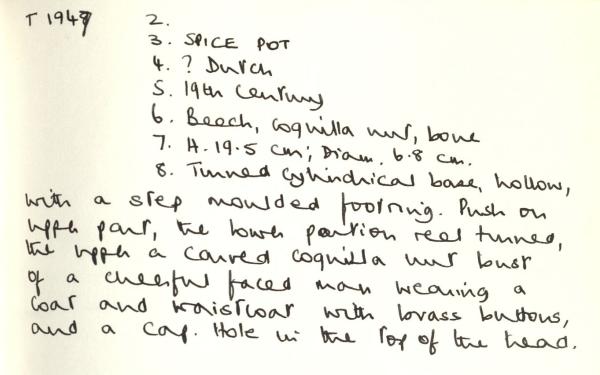 T 1947 2.
3. SPICE POT
4. ? Dutch
5. 19th Century
6. Beech, coquilla nut, bone
7. H. 19.5 cm; Diam. 6.8 cm.
8. Turned cylindrical base, hollow,
with a step moulded footring. Push on
upper part, the lower portion reel turned,
the upper a carved coquilla nut bust
of a cheerful faced man wearing a
coat and waistcoat with brass buttons,
and a cap. Hole in the top of the head.